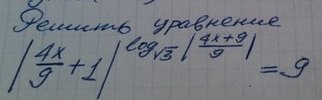 Решить уравнение
|4x/9 + 1|^(log_√3 |(4x+9)/9|) = 9